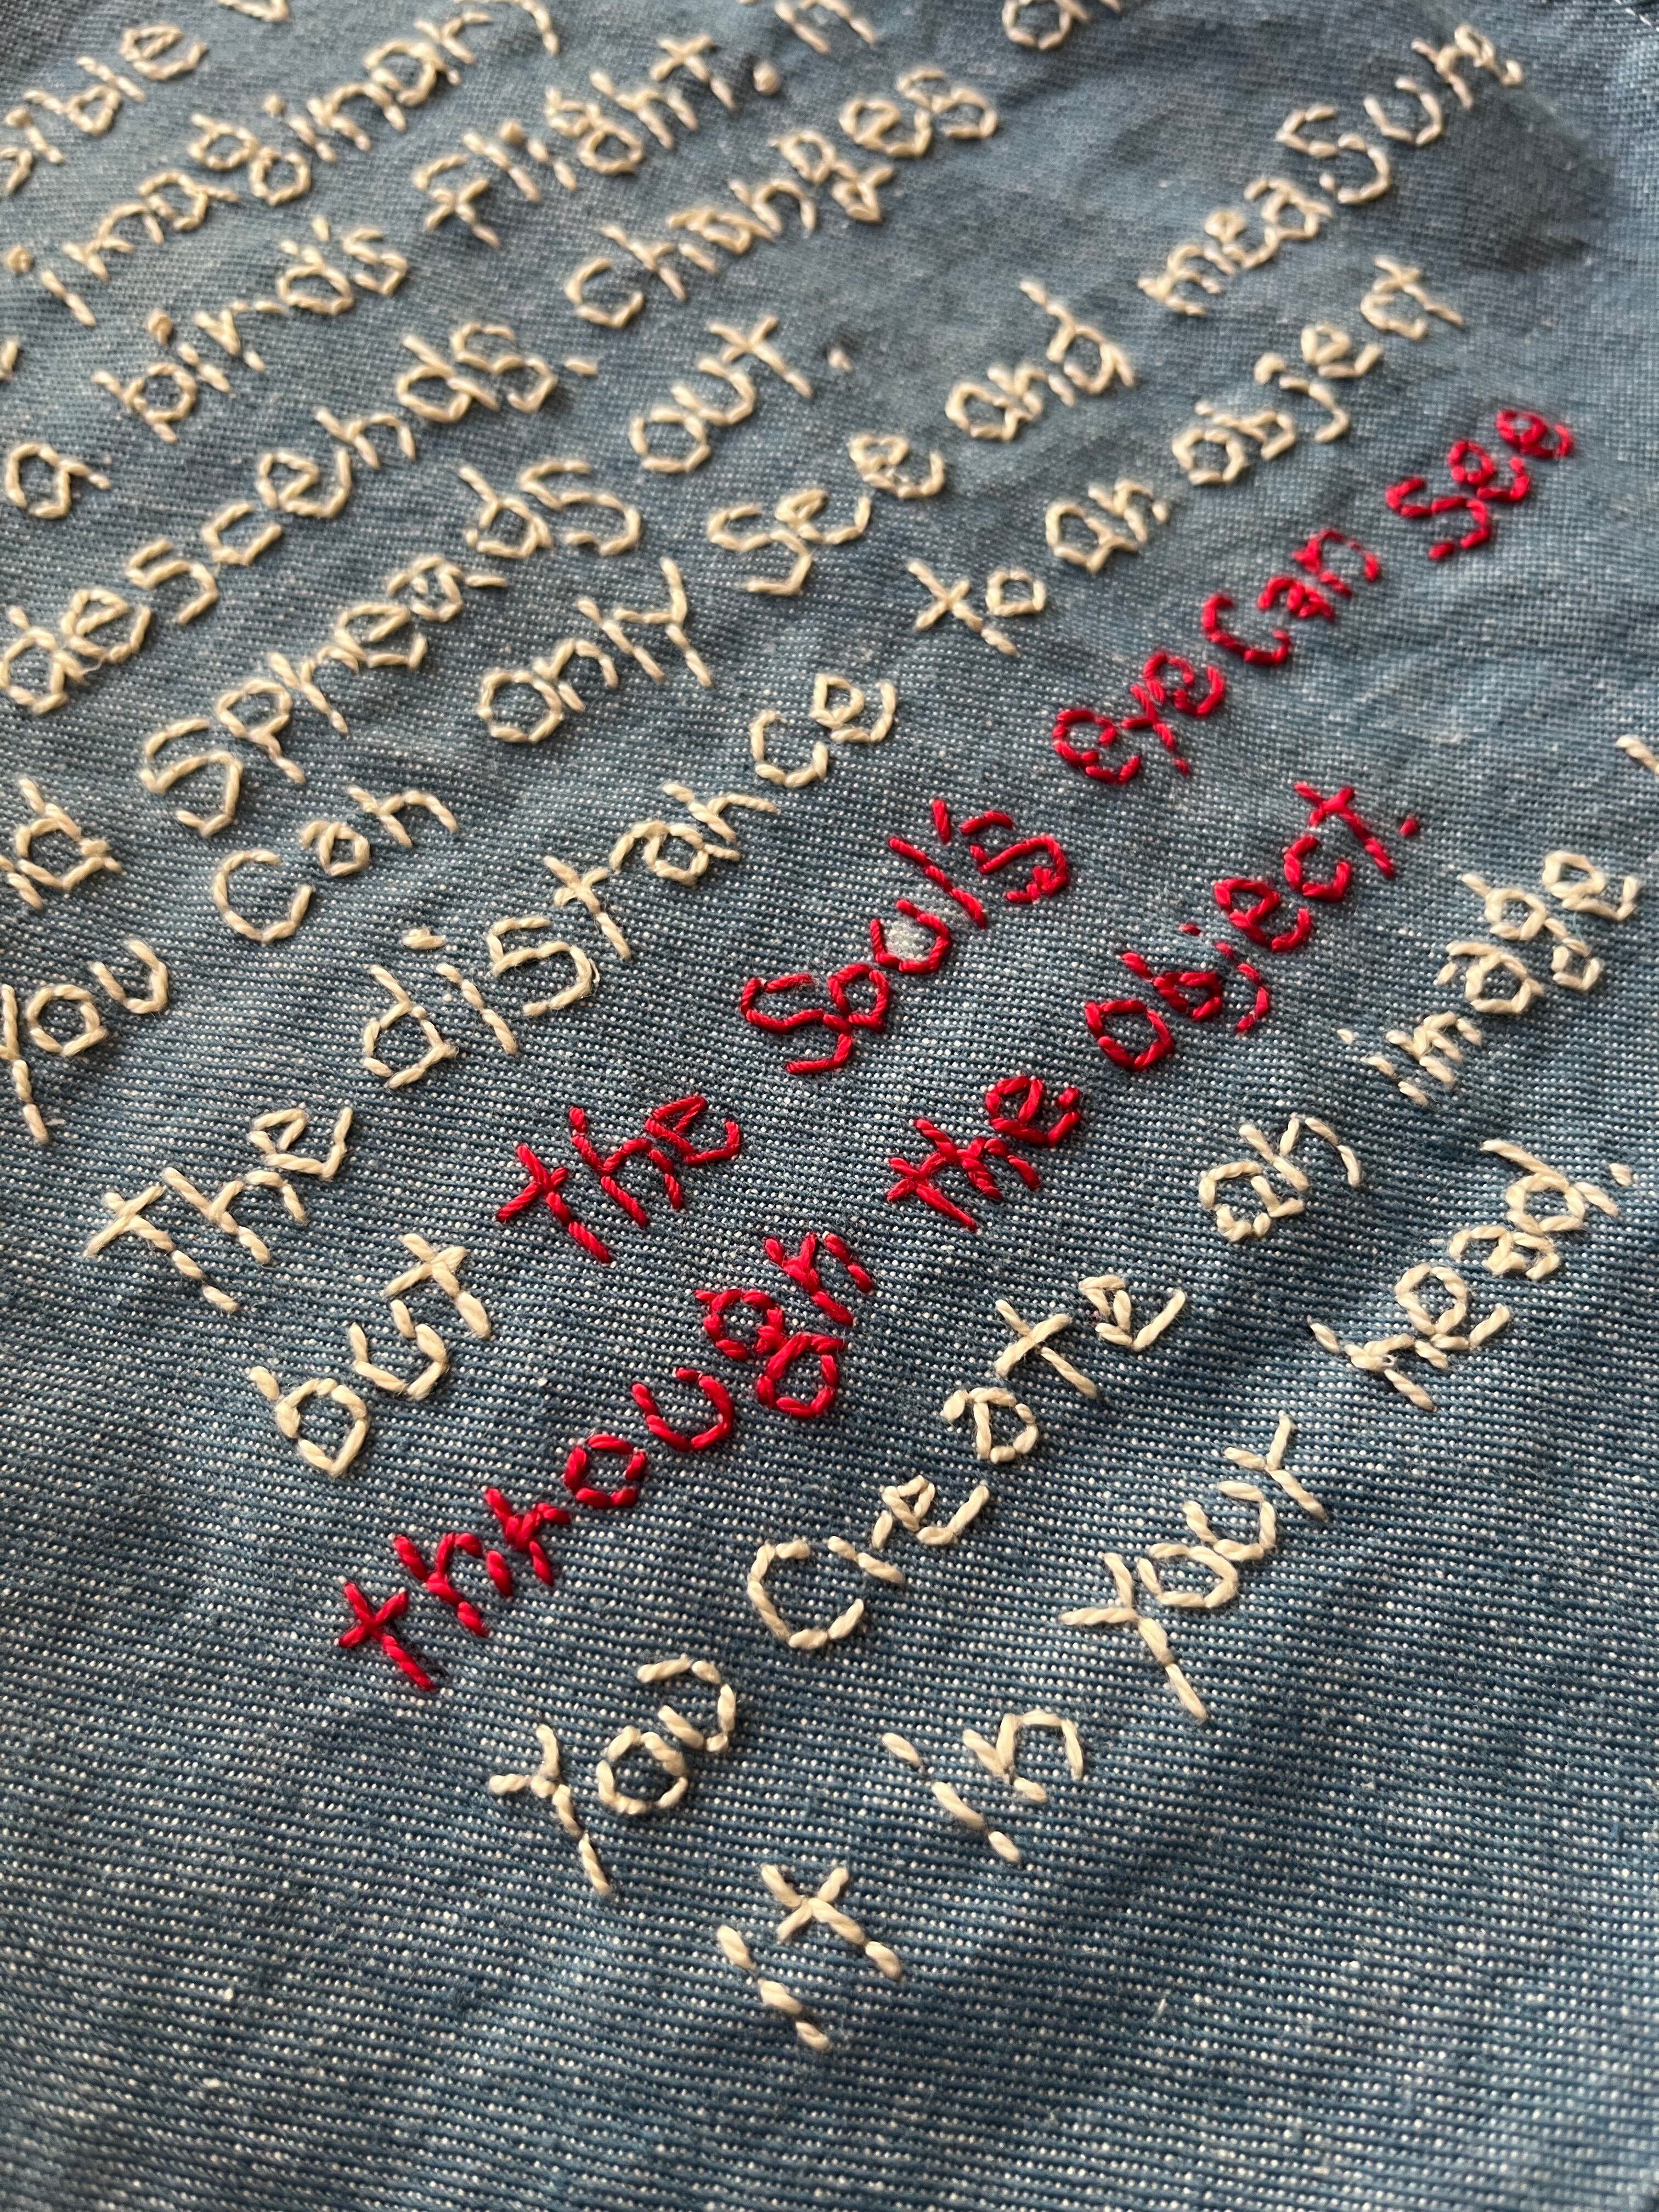 imaginary
a bird's flight.
descends, changes
spreads out.
You can only see and measure
the distance to an object
but the soul's eye can see
through the object.
You create an image
it in your head.